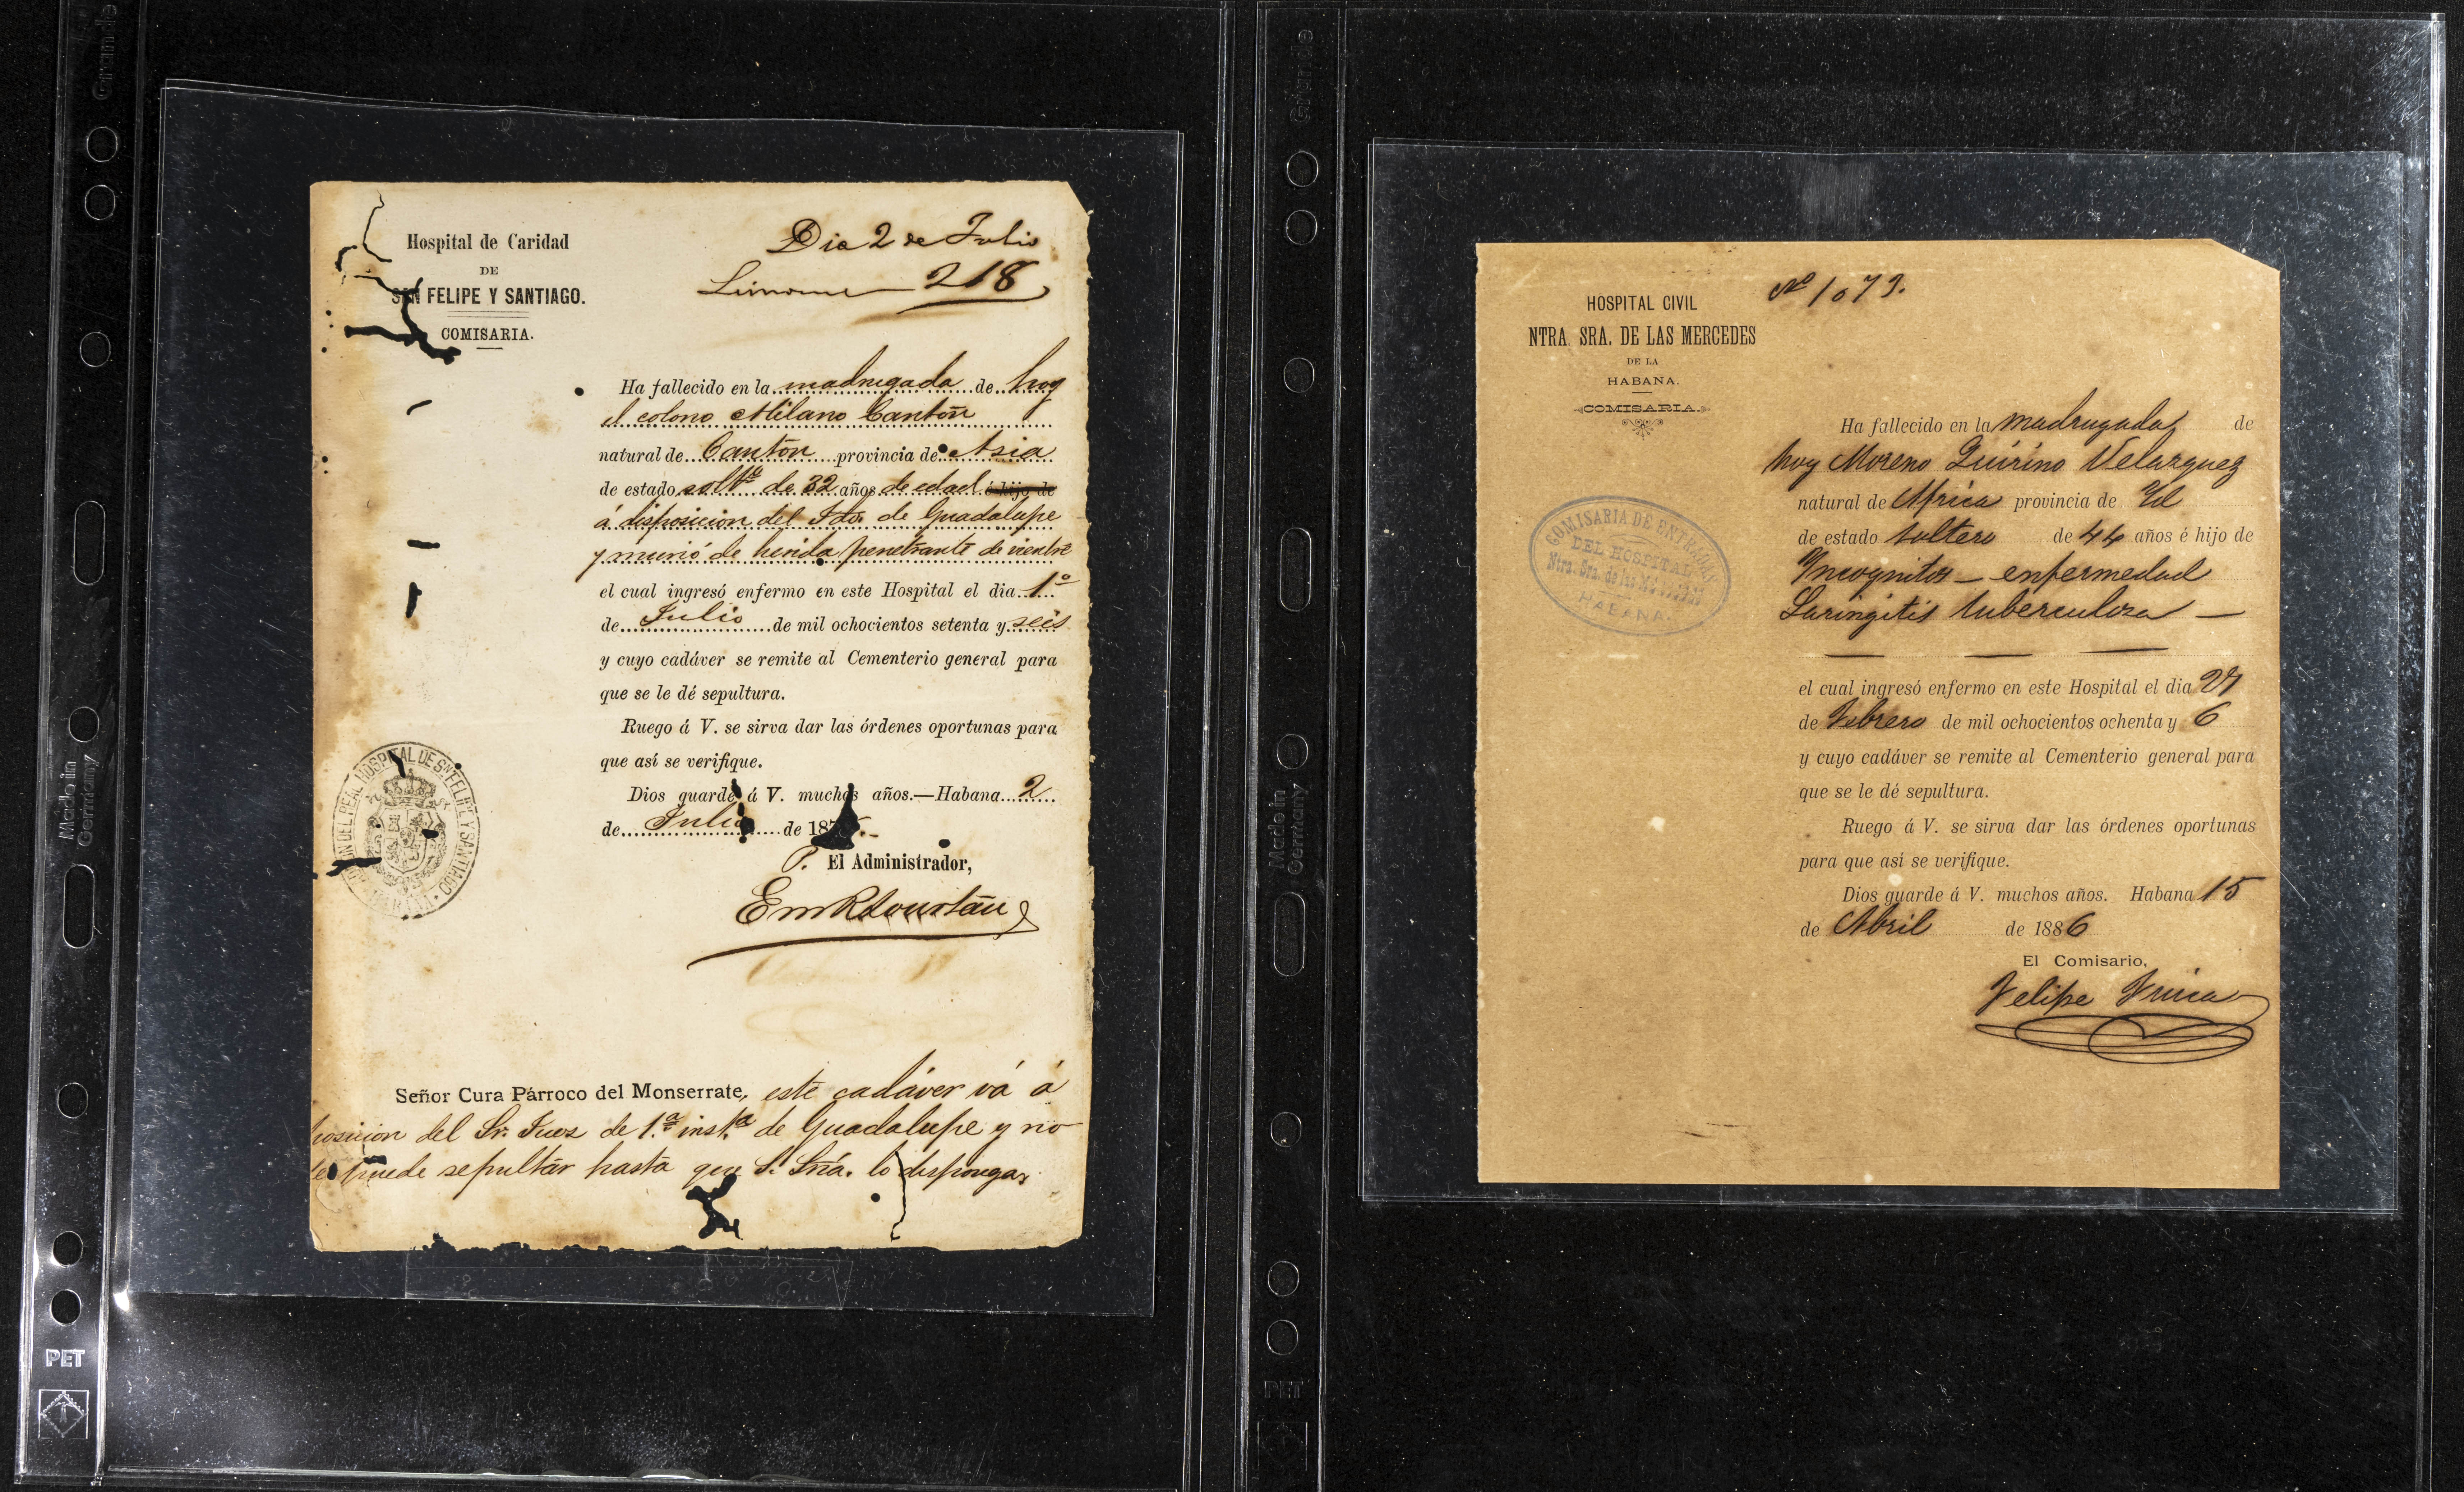 Hospital de Caridad
DE
SAN FELIPE Y SANTIAGO.
COMISARIA.
Dia 2 de Julio
218
Ha fallecido en la madrugada de hoy
el colono Milano Canton
natural de Canton provincia de Asia
de estado solto de 32 años de edad é hijo de
á disposicion del Jdo. de Guadalupe
y murió de herida penetrante de vientre
el cual ingresó enfermo en este Hospital el dia 1º
de Julio de mil ochocientos setenta y seis
y cuyo cadáver se remite al Cementerio general para
que se le dé sepultura.
Ruego á V. se sirva dar las órdenes oportunas para
que así se verifique.
Dios guarde á V. muchos años.—Habana 2
de Julio de 187
P. El Administrador,
HOSPITAL DE SN FELIPE Y SANTIAGO
HABANA
Señor Cura Párroco del Monserrate, este cadáver vá á
posicion del Sr. Juez de 1ª instª de Guadalupe y no
se puede sepultar hasta que S. Sría. lo disponga
Made in Germany
PET
Nº 1073.
HOSPITAL CIVIL
NTRA. SRA. DE LAS MERCEDES
DE LA
HABANA.
COMISARIA.
Ha fallecido en la madrugada de
hoy Moreno Quirino Velazquez
natural de Africa provincia de Id
de estado soltero de 44 años é hijo de
Incognitos – enfermedad
Laringitis tuberculosa —
el cual ingresó enfermo en este Hospital el dia 27
de Febrero de mil ochocientos ochenta y 6
y cuyo cadáver se remite al Cementerio general para
que se le dé sepultura.
Ruego á V. se sirva dar las órdenes oportunas
para que asi se verifique.
Dios guarde á V. muchos años. Habana 15
de Abril de 1886
El Comisario,
Felipe
COMISARIA DE ENTRADAS
DEL HOSPITAL
Ntra. Sra. de las Mercedes
HABANA.
Made in Germany
PET